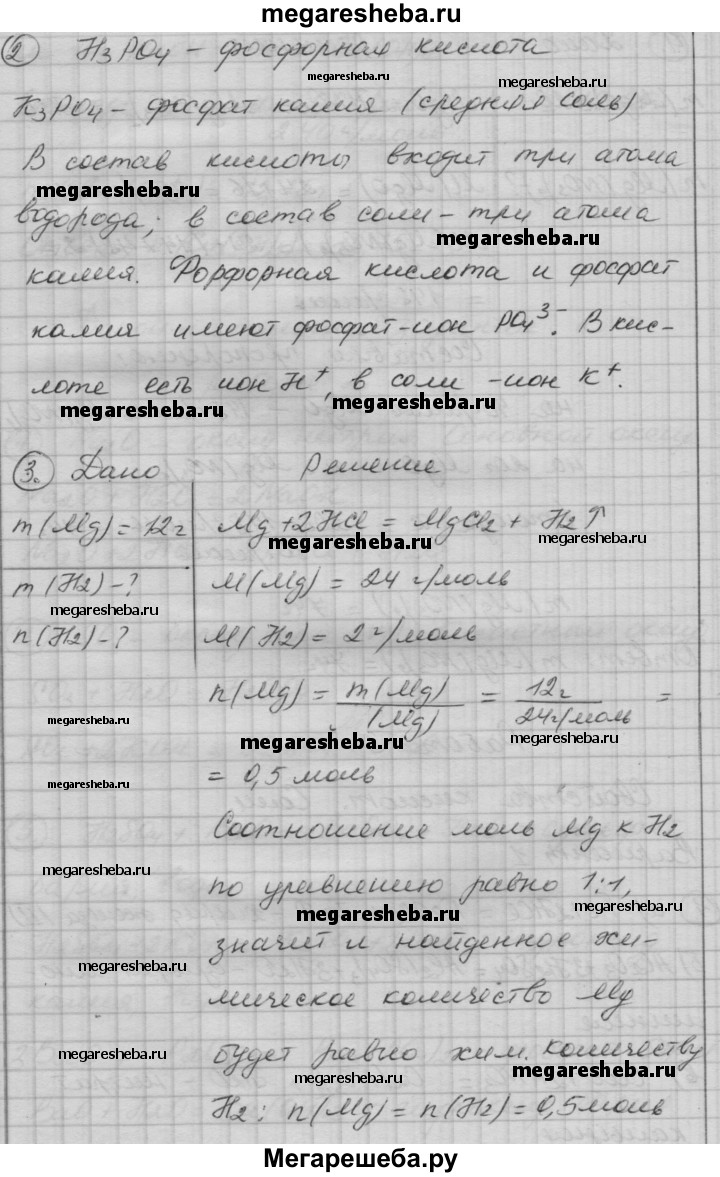 megaresheba.ru
2 H₃PO₄ – фосфорная кислота
megaresheba.ru
K₃PO₄ – фосфат калия (средняя соль)
megaresheba.ru
В состав кислоты входит три атома
megaresheba.ru
водорода; в состав соли – три атома
megaresheba.ru
калия. Форфорная кислота и фосфат
калия имеют фосфат-ион PO₄³⁻. В кис-
лоте есть ион H⁺, в соли – ион K⁺.
megaresheba.ru
megaresheba.ru
3. Дано Решение
m(Mg) = 12г Mg + 2HCl = MgCl₂ + H₂↑
megaresheba.ru
megaresheba.ru
m(H₂) – ? M(Mg) = 24 г/моль
megaresheba.ru
n(H₂) – ? M(H₂) = 2 г/моль
megaresheba.ru
n(Mg) = m(Mg) / (Mg) = 12г / 24г/моль =
megaresheba.ru
megaresheba.ru
megaresheba.ru
= 0,5 моль
megaresheba.ru
Соотношение моль Mg к H₂
megaresheba.ru
по уравнению равно 1:1,
megaresheba.ru
megaresheba.ru
значит и найденное хи-
megaresheba.ru
мическое количество Mg
будет равно хим. количеству
megaresheba.ru
megaresheba.ru
megaresheba.ru
H₂: n(Mg) = n(H₂) = 0,5 моль
Мегарешеба.ру